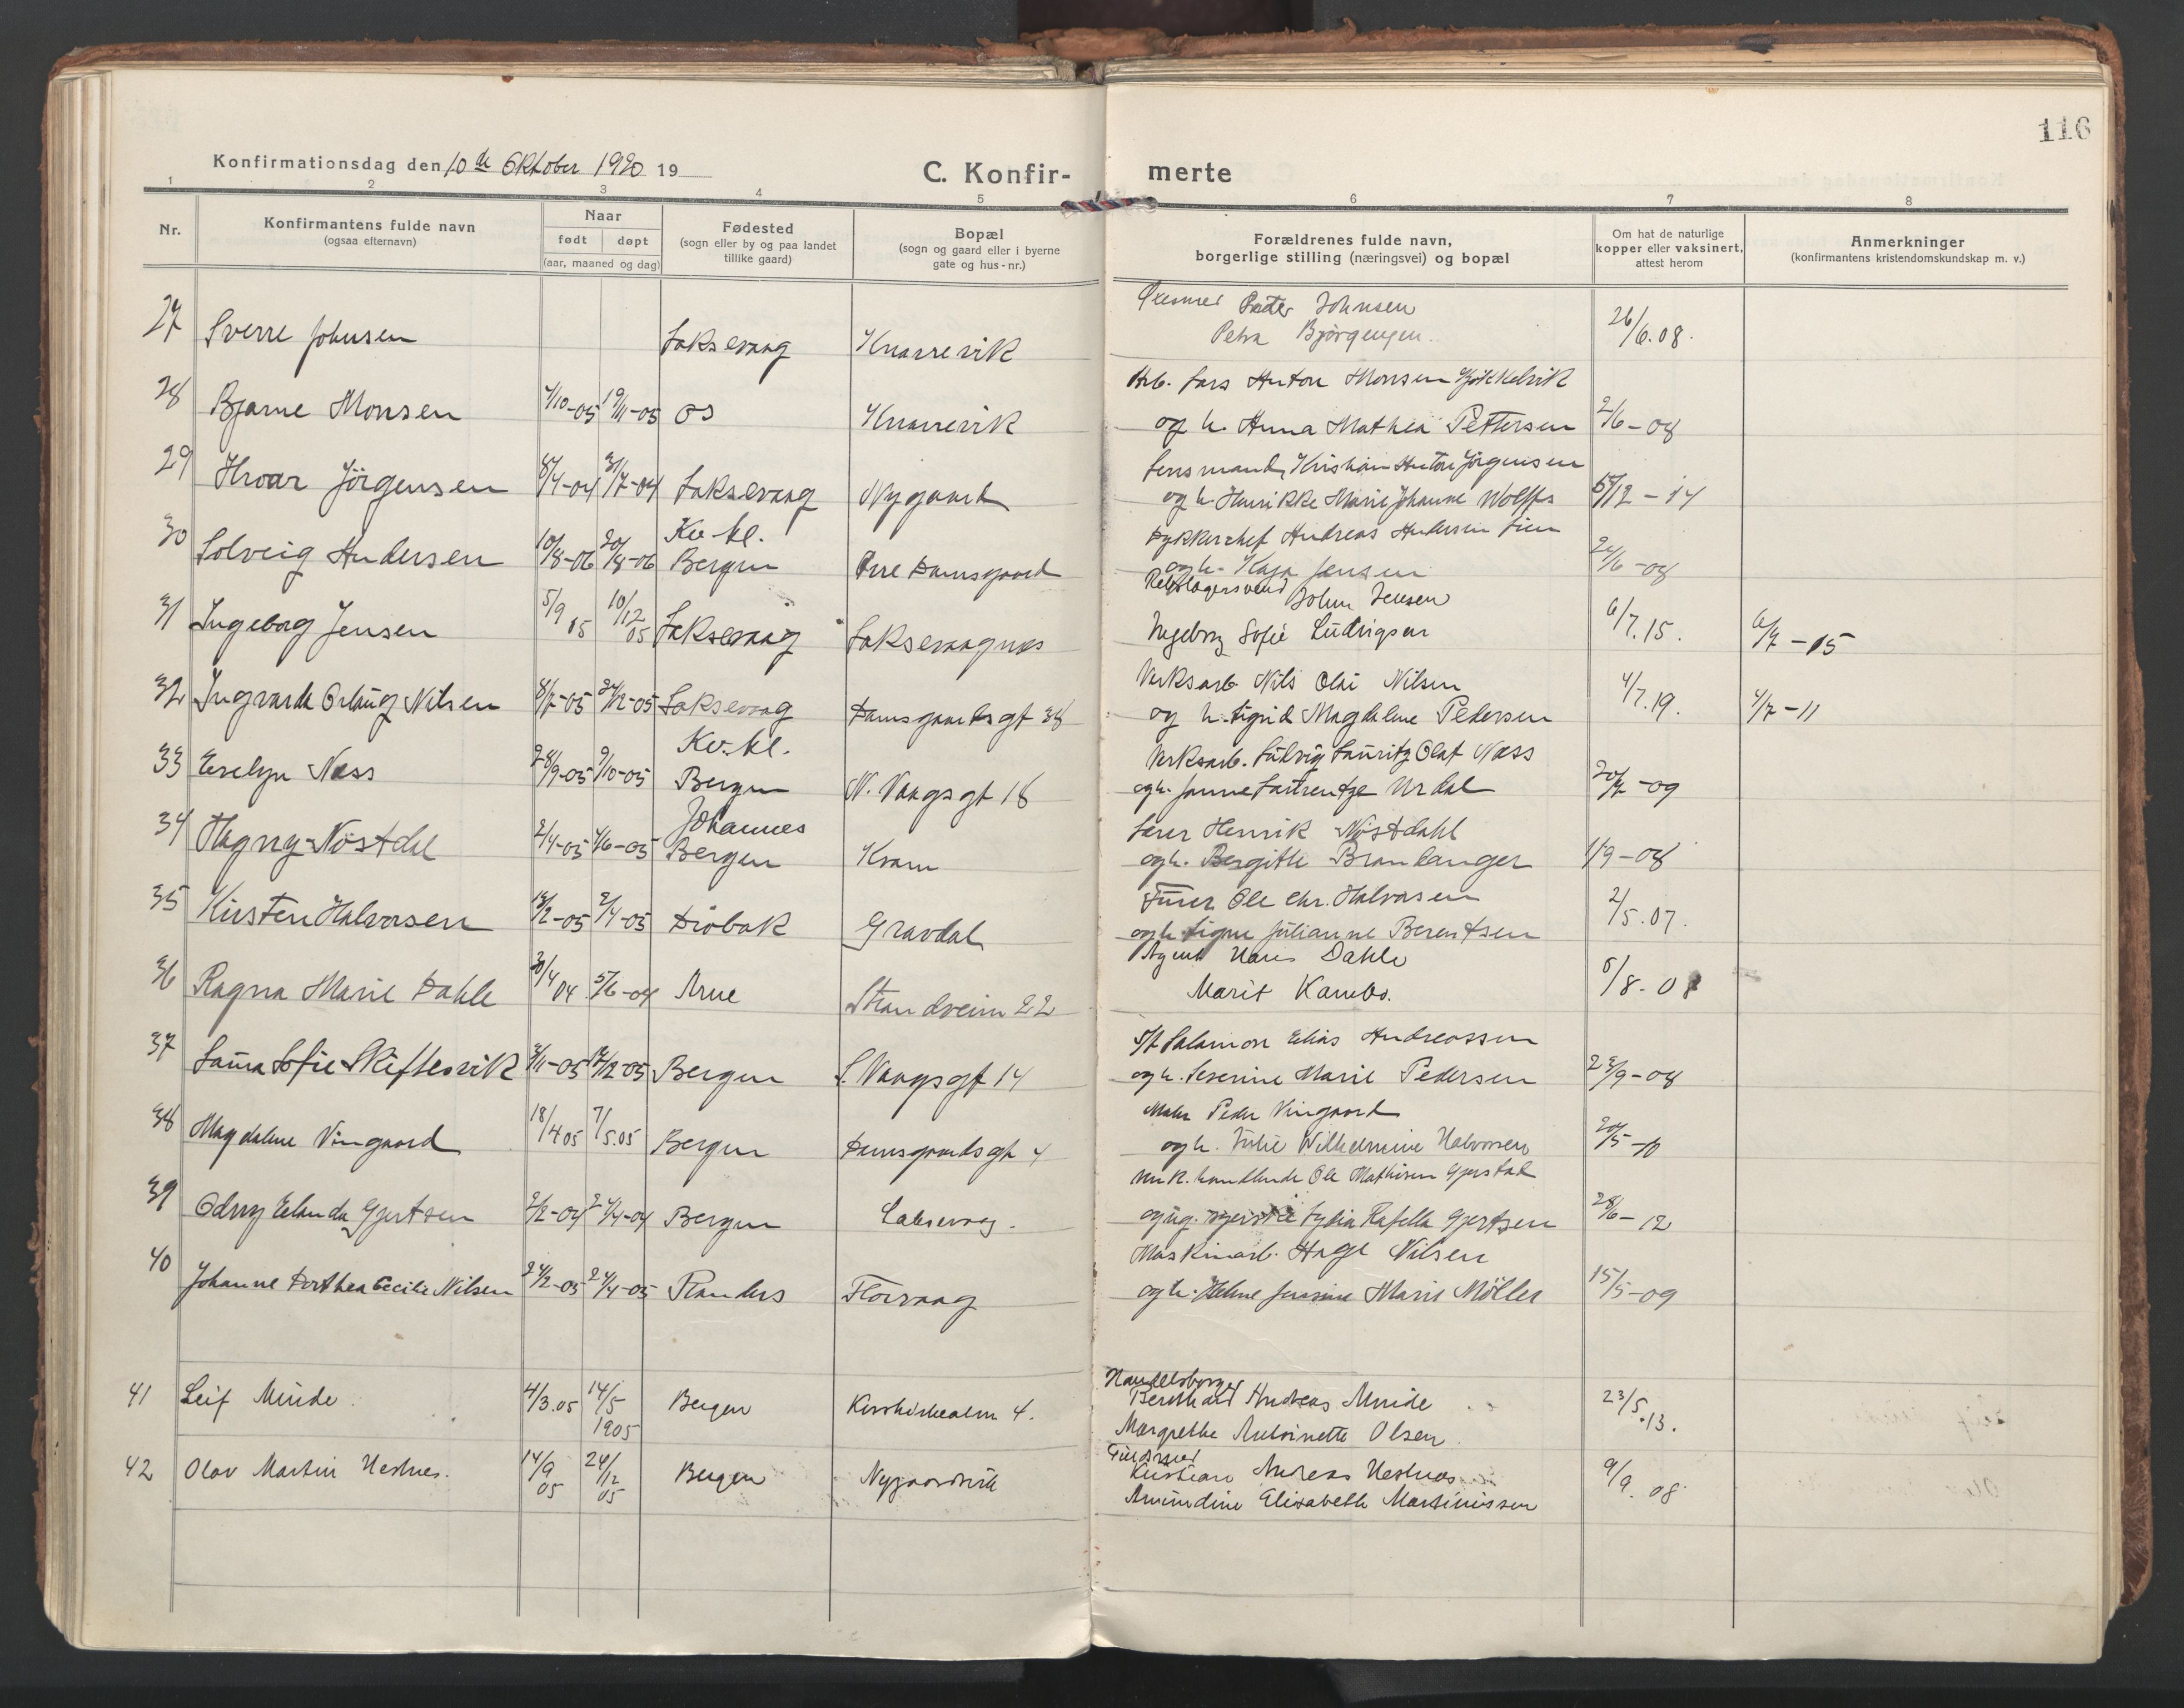 116
Konfirmationsdag den 10de Oktober 1920 19
C. Konfir- merte
1 2 3 4 5 6 7 8
Nr.
Konfirmantens fulde navn
(ogsaa efternavn)
Naar
født døpt
(aar, maaned og dag)
Fødested
(sogn eller by og paa landet
tillike gaard)
Bopæl
(sogn og gaard eller i byerne
gate og hus-nr.)
Forældrenes fulde navn,
borgerlige stilling (næringsvei) og bopæl
Om hat de naturlige
kopper eller vaksinert,
attest herom
Anmerkninger
(konfirmantens kristendomskundskap m. v.)
27 Sverre Johnsen Laksevaag Knarrevik
Peder Johnsen
Petra 26/6.08.
28 Bjarne Monsen 4/10-05 19/11-05 Os Knarrevik
Arb. Lars Anton Monsen
og h. Anna Mathea Pettersen 2/6-08
29 Hroar Jörgensen 8/4-04 31/7-04 Laksevaag Nygaard
Lensmand Kristian Anton Jörgensen
og h. Henrikke Marie Johanne Wolffs 5/12-14
30 Solveig Andersen 10/8-06 20/8-06 Kv.kl. Bergen Øvre Damsgaard
Dykkerchef Andreas Andersen Lien
og h. Kaja Jensen 2/6-08
31 Ingeborg Jensen 5/9 05 10/12 05 Laksevaag Laksevaagnes
Rebslagersvend John Jensen
Ingeborg Sofie Ludvigsen 6/7.15. 6/7-15
32 Ingvarda Orlaug Nilsen 8/7-05 24/12-05 Laksevaag Damsgaardsgt 38
Verksarb. Nils Olai Nilsen
og h. Sigrid Magdalene Pedersen 4/7.19. 4/7-11
33 Evelyn Næss 28/9-05 9/10-05 Kv.kl. Bergen N. Vaagsgt 18
Verksarb. Ludvig Lauritz Olaf Næss
og h. Janne Laurentze Urdal 20/7-09
34 Magny Nöstdal 2/4-05 4/6-05 Johannes Bergen Kvam
Lærer Henrik Nöstdahl
og h. Bergitte Branlanger 1/9-08
35 Kirsten Halvorsen 12/2-05 2/4-05 Dröbak Gravdal
Furer Ole Chr. Halvorsen
og h. Signe Julianne Berentsen 2/5.07.
36 Ragna Marie Dahle 30/4 04 5/6-04 Arne Strandveien 22
Agent Hans Dahle
Marit Kambo. 5/8-08
37 Laura Sofie Skiftesvik 3/11-05 17/12-05 Bergen S. Vaagsgt 14
Salamon Elias Andreassen
og h. Severine Marie Pedersen 23/9-08
38 Magdalene Vingaard 18/4 05 7/5.05 Bergen Damsgaardsgt 4
Maler Peder Vingaard
og h. Julie Wilhelmine Halvorsen 20/5-10
39 Odny Elanda Gjertsen 2/2-04 24/4-04 Bergen Laksevaag.
handlende Ole Mathisen Gjerstad
og ug. syerske Lydia Rafella Gjertsen 28/6-12
40 Johanne Dorthea Cecilie Nilsen 24/2-05 24/4-05 Randers Florvaag
Maskinarb. Aage Nilsen
og h. Helene Jensine Marie Möller 15/5-09
41 Leif Minde. 4/3.05 14/5 1905 Bergen Kirkeholm 4.
Handelsborger
Bernhard Andreas Minde
Margrethe Antoinette Olsen 23/5.13.
42 Olav Martin Hestnes. 14/9 05 24/12 05 Bergen Nygaardsvik
Kristian Andreas Hestnes
Amundine Elisabeth Martinussen 9/9. 08